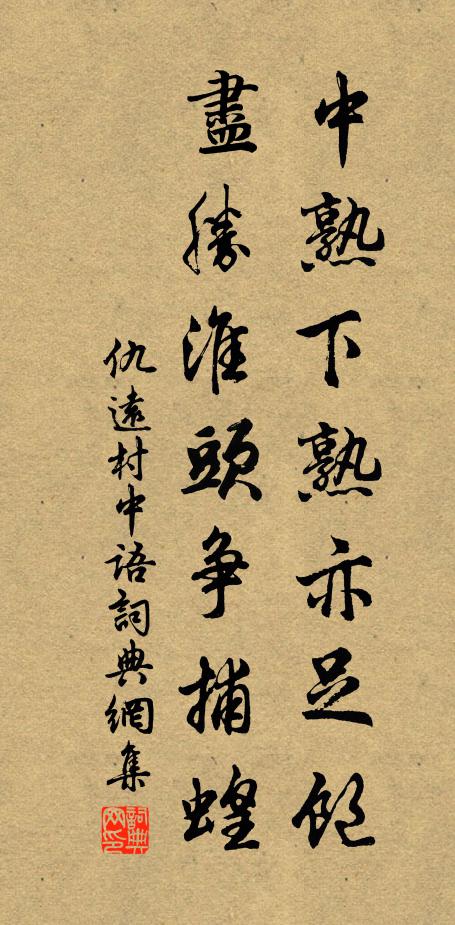 中熟下熟亦足飽
盡勝淮頭爭捕蝗
仇遠村中語詞典網集
詞典网印